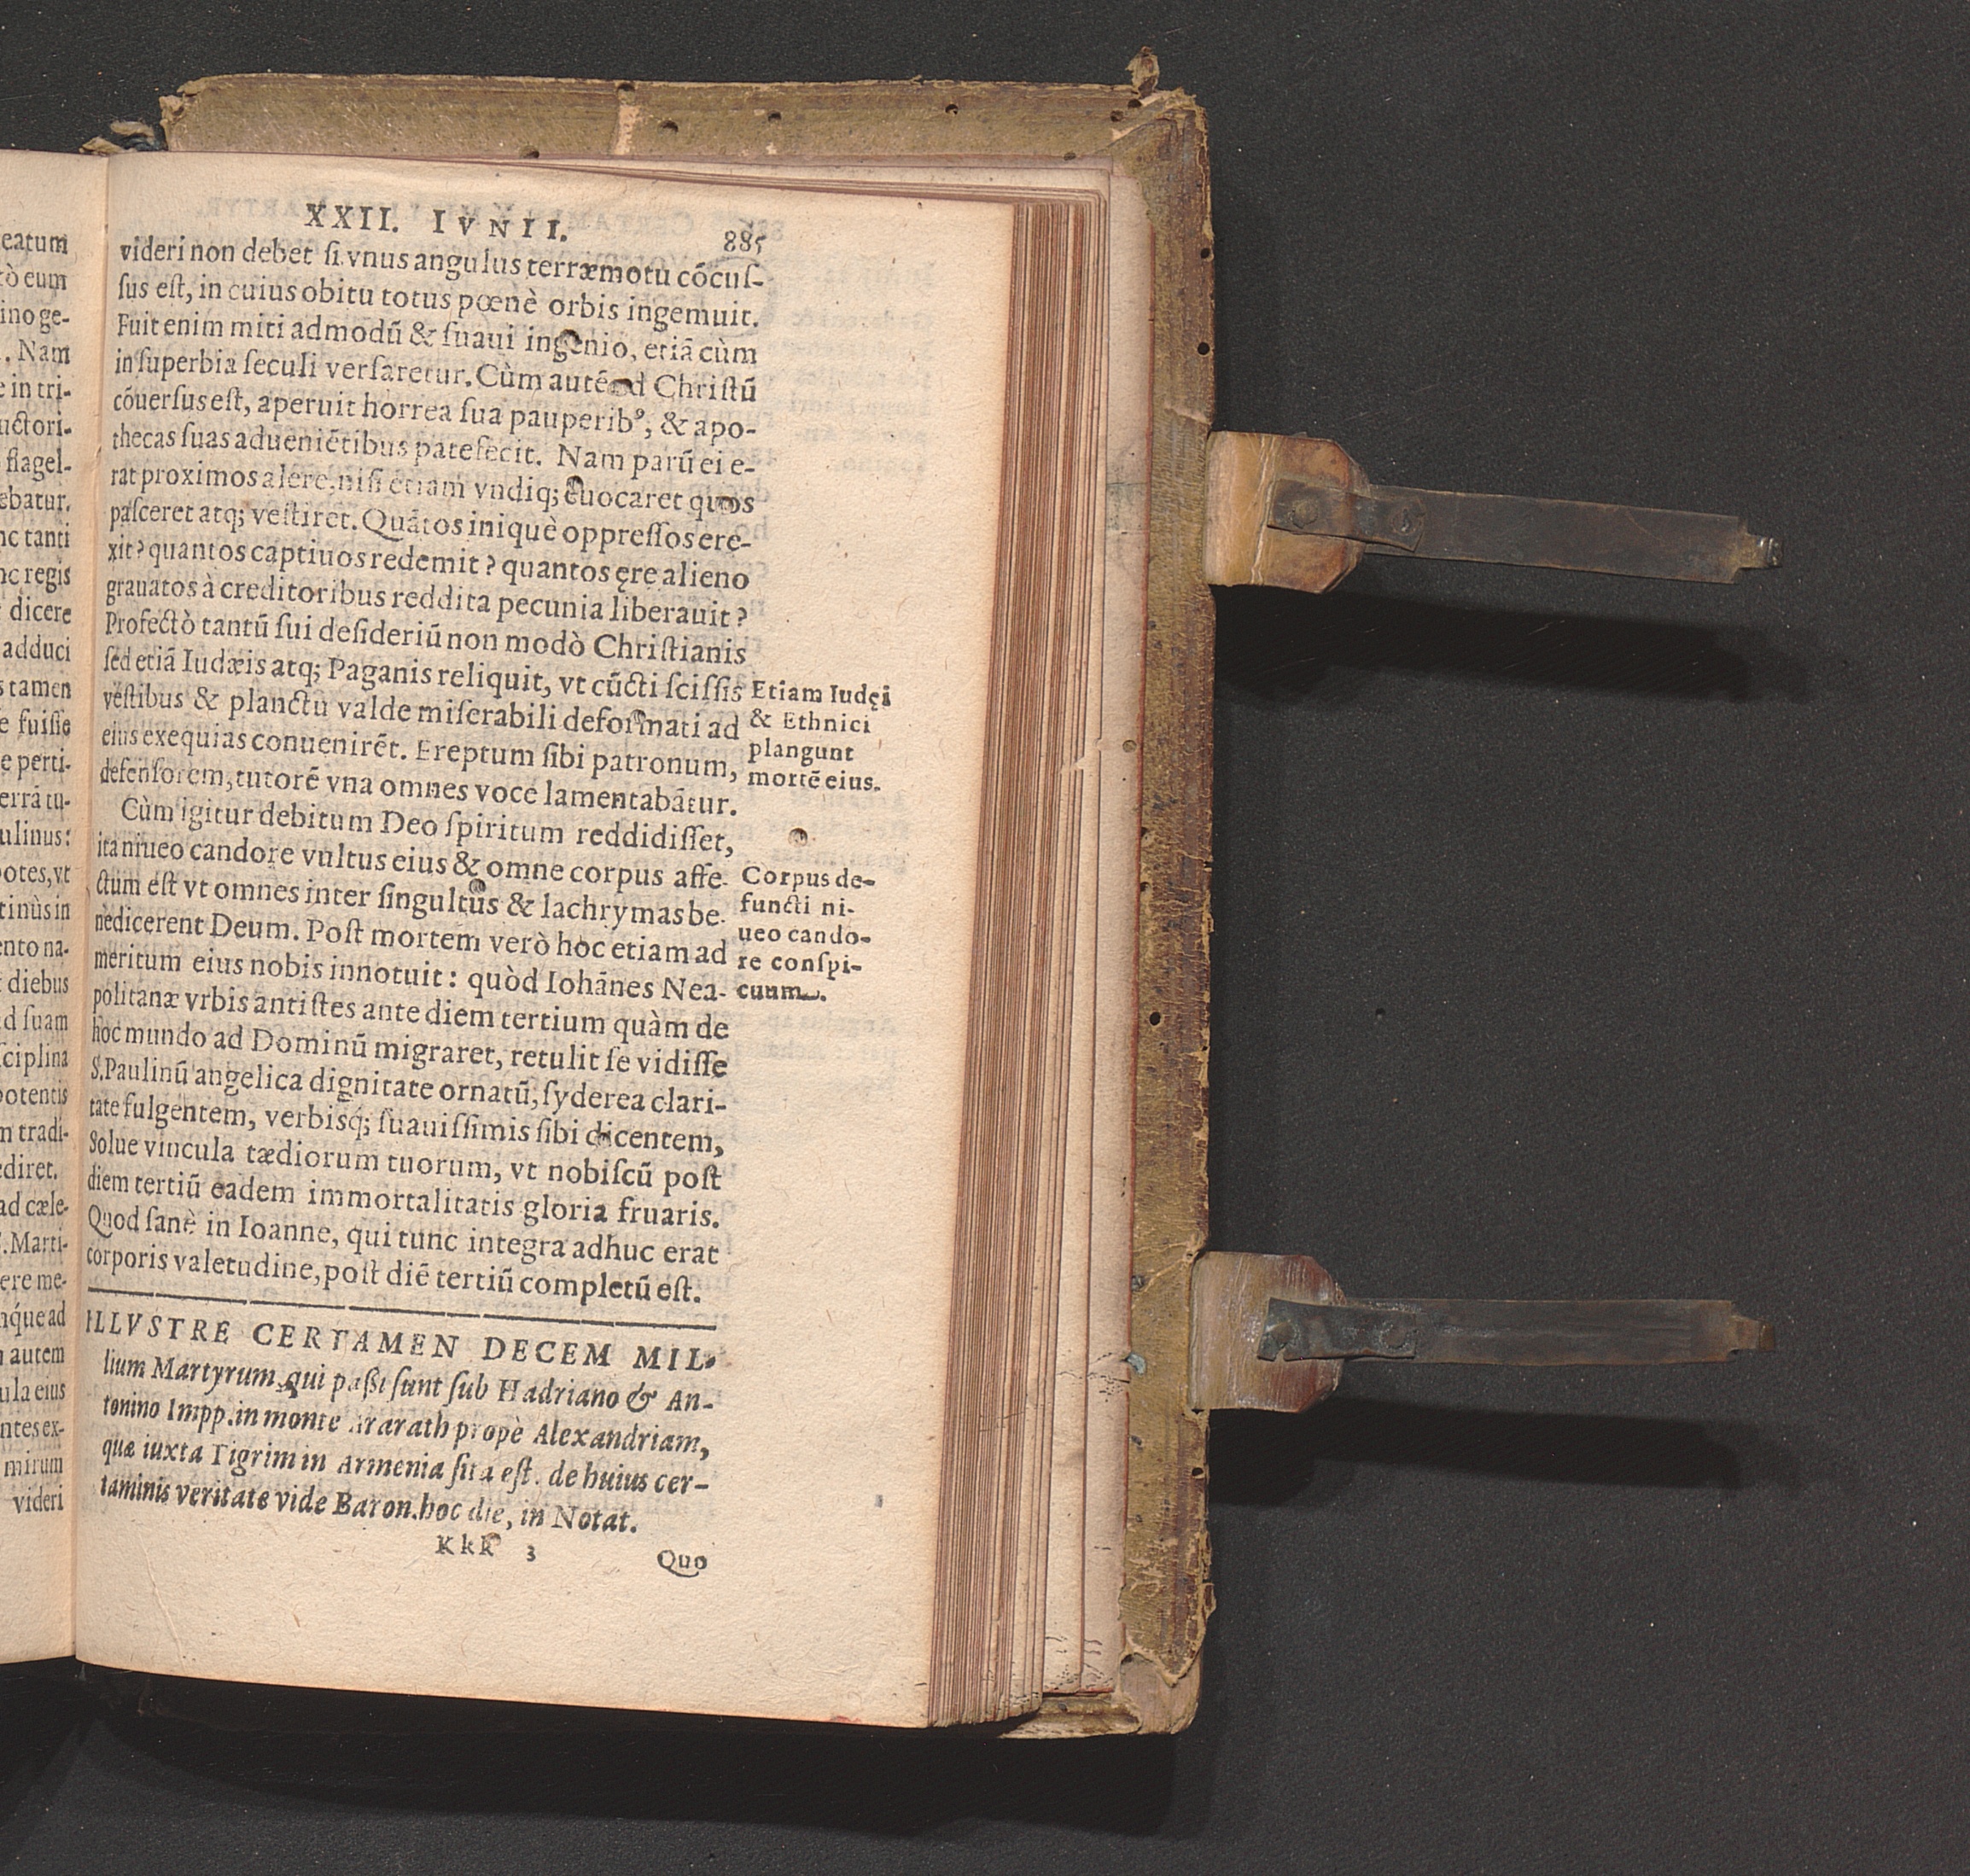 eatum
ò eum
ino ge-
. Nam
e in tri-
uctori-
flagel-
ebatur.
nc tanti
nc regis
dicere
adduci
s tamen
e fuisse
e perti-
errā tu-
ulinus:
potes, vt
tinùs in
ento na-
t diebus
d suam
ciplina
potentis
m tradi-
ediret.
ad cæle-
S. Marti-
ere me-
mq́ue ad
autem
ula eius
ntes ex-
mirum
videri
XXII. IVNII. 885
videri non debet si vnus angulus terræmotu cōcuſ-
ſus eſt, in cuius obitu totus pœnè orbis ingemuit.
Fuit enim miti admodū & ſuaui ingenio, etiā cùm
in ſuperbia ſeculi verſaretur. Cùm autē ad Chriſtū
cōuerſus eſt, aperuit horrea ſua pauperibꝰ, & apo-
thecas ſuas adueniētibus patefecit. Nam parū ei e-
rat proximos alere, niſi etiam vndiq; euocaret quos
paſceret atq; veſtiret. Quātos iniquè oppreſſos ere-
xit? quantos captiuos redemit? quantos ęre alieno
grauatos à creditoribus reddita pecunia liberauit?
Profectò tantū ſui deſideriū non modò Chriſtianis
ſed etiā Iudæis atq; Paganis reliquit, vt cūcti ſciſſis
veſtibus & planctu valde miſerabili deformati ad
eius exequias conuenirēt. Ereptum ſibi patronum,
defenſorem, tutorē vna omnes voce lamentabātur.
Cùm igitur debitum Deo ſpiritum reddidiſſet,
ita niueo candore vultus eius & omne corpus affe-
ctum eſt vt omnes inter ſingultus & lachrymas be-
nedicerent Deum. Poſt mortem verò hoc etiam ad
meritum eius nobis innotuit: quòd Iohānes Nea-
politanæ vrbis antiſtes ante diem tertium quàm de
hoc mundo ad Dominū migraret, retulit ſe vidiſſe
S. Paulinū angelica dignitate ornatū, ſyderea clari-
tate fulgentem, verbisq́; ſuauiſſimis ſibi dicentem,
Solue vincula tædiorum tuorum, vt nobiſcū poſt
diem tertiū eadem immortalitatis gloria fruaris.
Quod ſanè in Ioanne, qui tunc integra adhuc erat
corporis valetudine, poſt diē tertiū completū eſt.
Etiam Iudęi
& Ethnici
plangunt
mortē eius.
Corpus de-
functi ni-
ueo cando-
re conſpi-
cuum.
ILLVSTRE CERTAMEN DECEM MIL-
lium Martyrum, qui paßi ſunt ſub Hadriano & An-
tonino Impp. in monte Ararath propè Alexandriam,
quæ iuxta Tigrim in Armenia ſita eſt. de huius cer-
taminis veritate vide Baron. hoc die, in Notat.
Kkk 3 Quo